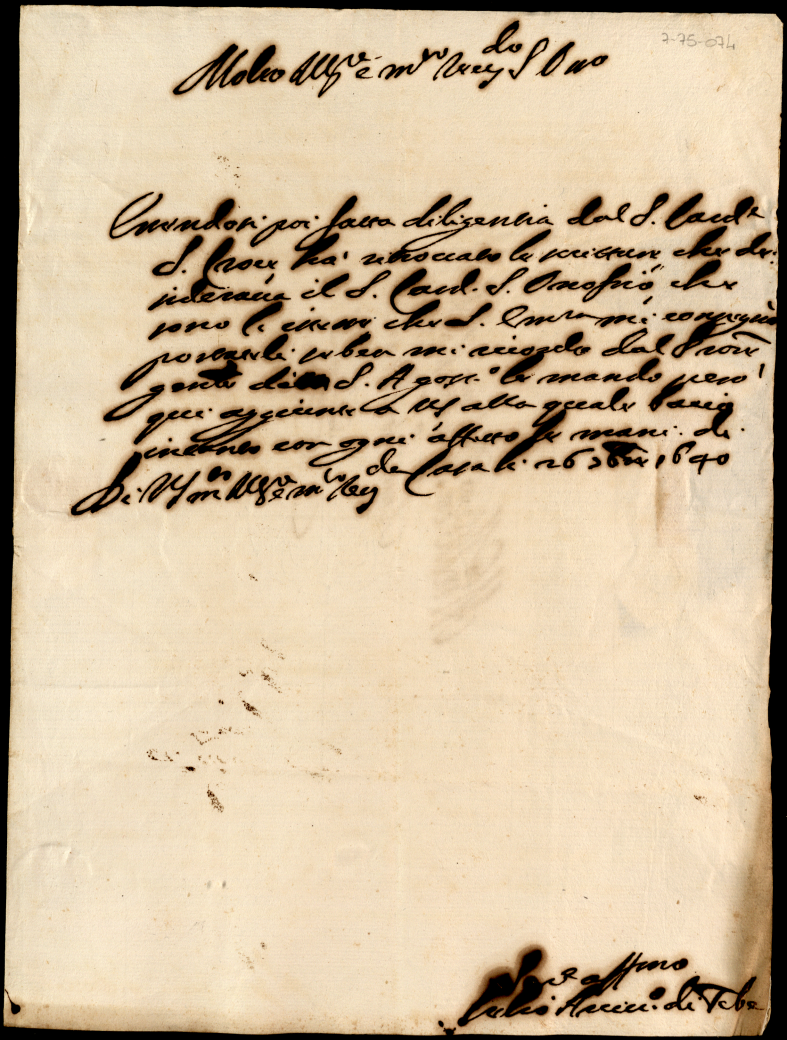 7-75-074
Molto Ill.re e m.to Rev.do S.
Essendosi poi fatta diligentia dal S. Card.e
S. Croce ha' ritrovato le scritture che de-
siderava il S. Card. S. Onofrio che
sono le che S. Em.za mi
portarle mi dal
gente S. Agost.o le mando però
qui aggiunte a VS alla quale bacio
intanto con ogni affetto le mani. di
Casa li 26 1640
Di VS m.to Ill.re e m.to Rev.do
Ser.e aff.mo
di Tebe